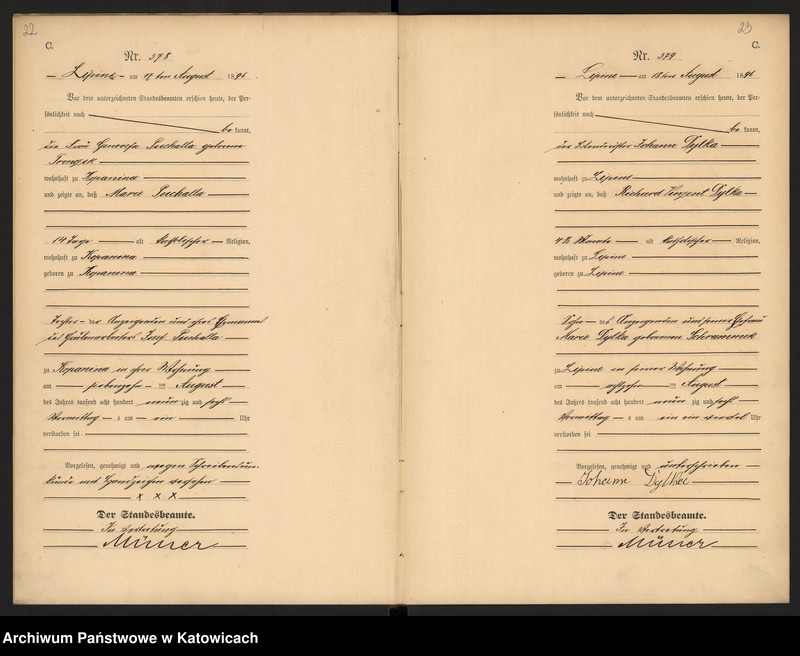 22
C.
Nr. 378
Lipine am 17ten August 1896
Vor dem unterzeichneten Standesbeamten erschien heute, der Per-
sönlichkeit nach
be kannt,
die Frau Genovefa Puchalla geborene
wohnhaft zu Kopanina
und zeigte an, daß Marie Puchalla
14 Tage alt katholischer Religion,
wohnhaft zu Kopanina
geboren zu Kopanina
Tochter der Anzeigenden und ihres Ehemannes
des Josef Puchalla
zu Kopanina in ihrer Wohnung
am siebenzehn ten August
des Jahres tausend acht hundert neun zig und sechs
Vormittag s um ein Uhr
verstorben sei
Vorgelesen, genehmigt und wegen Schreibensun-
kunde mit Handzeichen versehen
x x x
Der Standesbeamte.
In Vertretung
23
C.
Nr. 379
Lipine am 18ten August 1896
Vor dem unterzeichneten Standesbeamten erschien heute, der Per-
sönlichkeit nach
be kannt,
der Johann Dylka
wohnhaft zu Lipine
und zeigte an, daß Richard Vinzent Dylka
4 ½ Monate alt katholischer Religion,
wohnhaft zu Lipine
geboren zu Lipine
Sohn des Anzeigenden und seiner Ehefrau
Marie Dylka geborenen
zu Lipine in seiner Wohnung
am achtzehn ten August
des Jahres tausend acht hundert neun zig und sechs
Vormittag s um ein ein viertel Uhr
verstorben sei
Vorgelesen, genehmigt und unterschrieben
Johann Dylka
Der Standesbeamte.
In Vertretung
Archiwum Państwowe w Katowicach